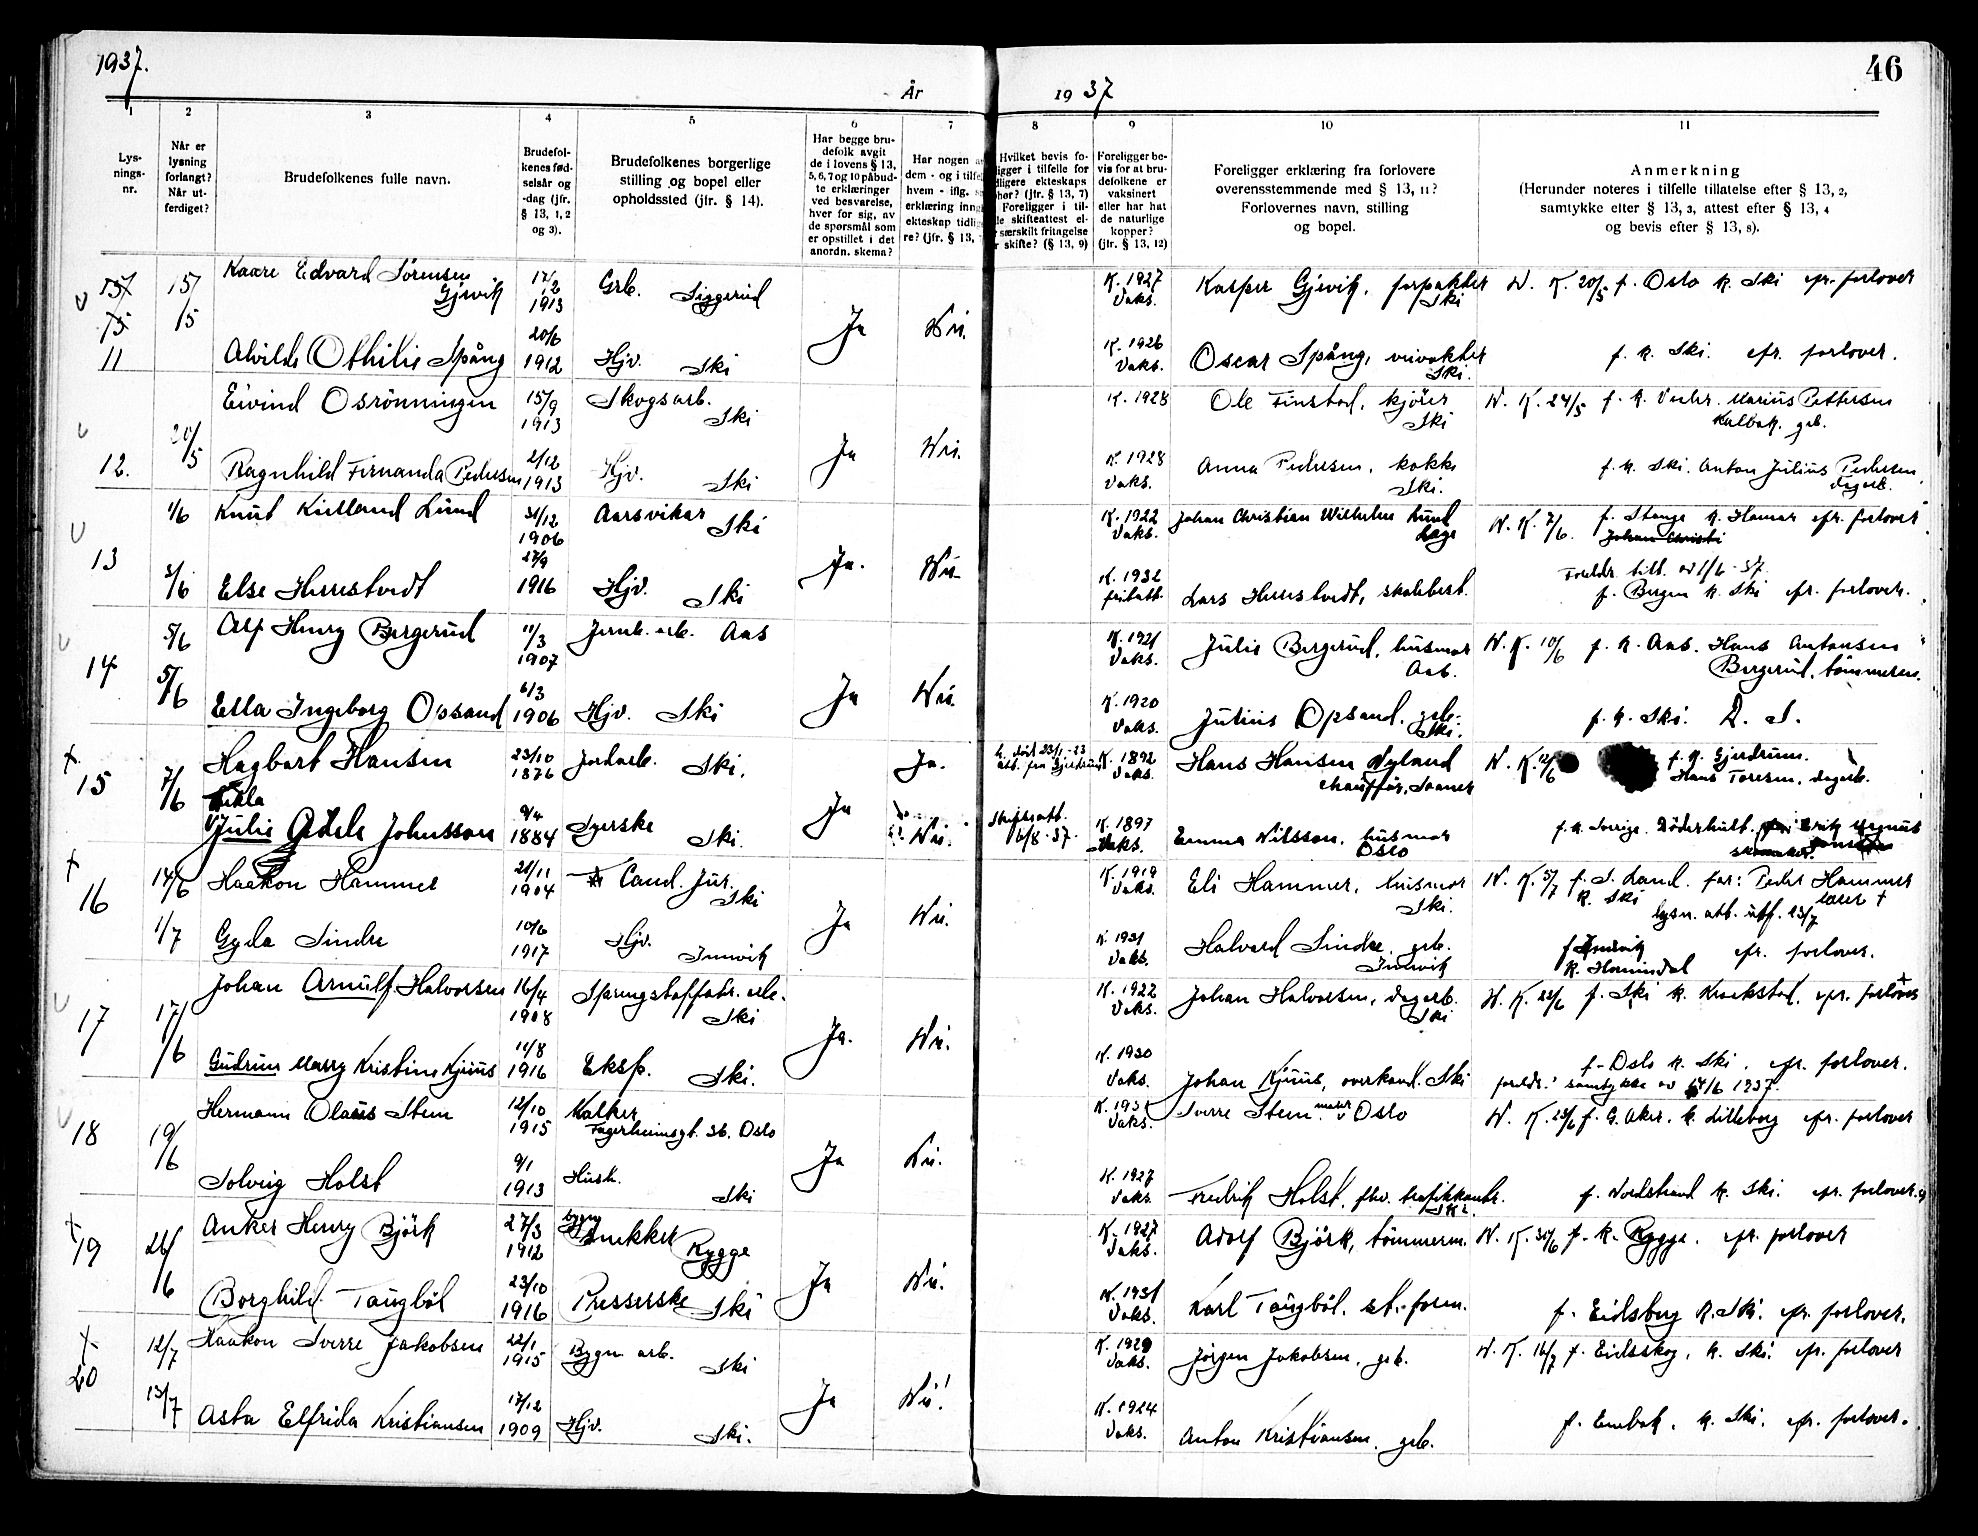 1937.
46
År
19 37
1
2
3
4
5
6
7
8
9
10
11
Lys-
nings-
nr.
Når er
lysning
forlangt?
Når ut-
ferdiget?
Brudefolkenes fulle navn.
Brudefol-
kenes fød-
selsår og
-dag (jfr.
§ 13, 1, 2
og 3).
Brudefolkenes borgerlige
stilling og bopel eller
opholdssted (jfr. § 14).
Har begge bru-
defolk avgit
de i lovens § 13,
5, 6, 7 og 10 påbud-
te erklæringer
ved besvarelse,
hver for sig, av
de spørsmål som
er opstillet i det
anordn. skema?
Har nogen
dem - og i tilfel
hvem - iflg.
erklæring inng
ekteskap tidlig
re? (jfr. § 13,
Hvilket bevis fo-
ligger i tilfelle for
dligere ekteskaps
phør? (jfr. § 13, 7)
Foreligger i til-
le skifteattest el-
særskilt fritagelse
skifte? (§ 13, 9)
Foreligger be-
vis for at bru-
defolkene er
vaksinert
eller har hat
de naturlige
kopper?
(jfr. § 13, 12)
Foreligger erklæring fra forlovere
overensstemmende med § 13, 11?
Forlovernes navn, stilling
og bopel.
Anmerkning
(Herunder noteres i tilfelle tillatelse efter § 13, 2,
samtykke efter § 13, 3, attest efter § 13, 4
og bevis efter § 13, 8).
15/5 Kaare Edvard Sørensen 17/12 Grb. K. 1927 Kasper Gjevik, forpakter K. 20/5 f. Oslo k. Ski efr. forlover
Gjevik 1913 Siggerud Vaks. Ski
20/6 Ja K. 1926
11 Alvilde Othilie Spång 1912 Hjv. Ski Vaks. Oscar Spång, veivokter f. k. Ski. efr. forlover.
Ski.
Eivind Osrönningen 15/9 Skogsarb. K. 1928 Ole Finstad, kjører K. 24/5 f. k. Marius Pettersen
1913 Ski Ski Kalbak. gb.
20/5 2/12 Ja K. 1928
12. Ragnhild Fernanda Pedersen 1913 Hjv. Ski Vaks. Anna Pedersen, kokke f. k. Ski. Anton Julius Pedersen
Ski. dagarb.
1/6 Knut Kielland Lund 31/12 Ski K. 1922 Johan Christian Wilhelm Lund K. 7/6. f. Stange k. Hamar efr. forlover
1906 Vaks. Læge Johan Christi
27/9
13 2/6 Else Herrestvedt 1916 Hjv. Ski Ja. K. 1932 Lars Herrestvedt, Foreldr. till. av 1/6 - 37.
f. Bergen k. Ski efr. forlover.
5/6 Alf Henry Bergerud 11/3 Jernb. arb. Aas K. 1921 Julie Bergerud, husmor K. 10/6 f. k. Aas. Hans Antonsen
1907 Vaks. Aas. Bergerud, tömmerm.
14 5/6 6/3 Ja K. 1920
Ella Ingeborg Opsand 1906 Hjv. Ski Vaks. Julius Opsand. grb. f. k. Ski. D. d.
Ski.
15 7/6 Hagbart Hansen 23/10 Jordarb. Ski. Ja. død 23/1 - 23 K. 1892 Hans Hansen Nyland K. 12/6 f. k. Gjerdrum.
1876 att. fra Gjerdrum Vaks. chauffør, Hans Toresen, dagarb.
Julie Adele Johnsson 9/4 Syerske Ja Skifteatt. K. 1897 Emma Nilsson, husmor f. k. Sverige. Döderhult.
1884 Ski. 6/8 - 37. Vaks. Oslo
16 14/6 Haakon Hammer 21/11 Cand. Jur. K. 1919 Eli Hammer, husmor K. 5/7 f. S. Land. far: Peder Hammer
1904 Ski Vaks. Ski. k. Ski lærer †
lysn. att. utf. 23/7
1/7 Gyda Sindre 10/6 Hjv. Ja K. 1931 Halvard Sindre, grb. f Innvik efr. forlover.
1917 Innvik Vaks. Innvik k. Hornindal
17 17/6 Johan Arnulf Halvorsen 16/4 Sprengstoffabr. arb. K. 1922 Johan Halvorsen, dagarb. K. 22/6 f. Ski k. Kroekstad. efr. forlover
1908 Ski Vaks. Ski
11/8 Ja. K. 1930 f. Oslo k. Ski. efr. forlover.
Gudrun Marry Kristine Kjuus 1916 Eksp. Ski. Vaks. Johan Kjuus, overkond. Ski foreldr. samtykke av 17/6 1937.
18 19/6 Hermann Olaus Stem 12/10 K. 1931 Sverre Stem maler Oslo K. 23/6 f. G. Aker. k. Lilleborg efr. forlover
1915 Fagerheimsgt. Oslo Vaks.
9/1 Hush. Ja K. 1927
Solveig Holst 1913 Ski Vaks. Fredrik Holst, fhv. f. Nordstrand k. Ski. efr. forlover.
Ski.
19 26/6 Anker Henry Björk 27/3 bygn. snekker K. 1927 Adolf Björk, tömmerm. K. 30/6 f. k. Rygge. efr. forlover
1912 Rygge Vaks.
23/10 Ja K. 1931
Borghild Taugböl 1916 Presserske Ski Vaks. Karl Taugböl, st. form. f. Eidsberg k. Ski. efr. forlover.
20 12/7 Haakon Sverre Jakobsen 22/1 Bygn. arb. K. 1929 Jørgen Jakobsen, grb. K. 16/7 f. Eidsskog, k. Ski. efr. forlover
1915 Ski Vaks.
13/7 17/12 Ja K. 1924
Asta Elfrida Kristiansen 1909 Hjv. Ski. Vaks. Anton Kristiansen, grb. f. Enebak, k. Ski. efr. forlover.